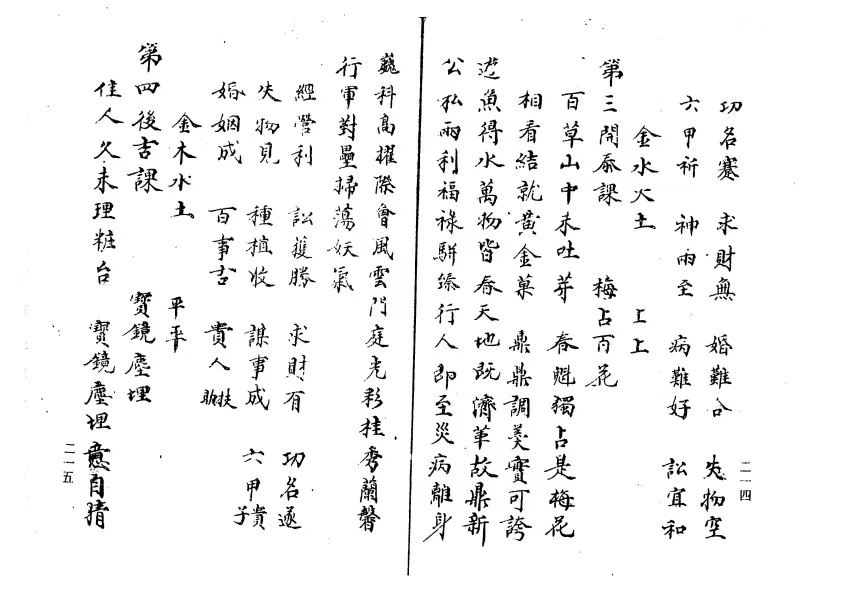 功名蹇 求財無 婚難合 失物空
六甲祈 神雨至 病難好 訟宜和
金水火土 上上
第三開泰課 梅占百花
百草山中未吐芽 春魁獨占是梅花
相看結就黃金菓 鼎鼎調羹實可誇
遊魚得水萬物皆春天地既濟革故鼎新
公私兩利福祿駢臻行人即至災病離身
二一四
巍科高擢際會風雲門庭光彩桂秀蘭馨
行軍對壘掃蕩妖氣
經營利 訟獲勝 求財有 功名遂
失物見 種植收 謀事成 六甲貴子
婚姻成 百事吉 貴人扶助
金木水土 平平
第四後吉課 寶鏡塵埋
佳人久未理粧台 寶鏡塵埋意自猜
二一五